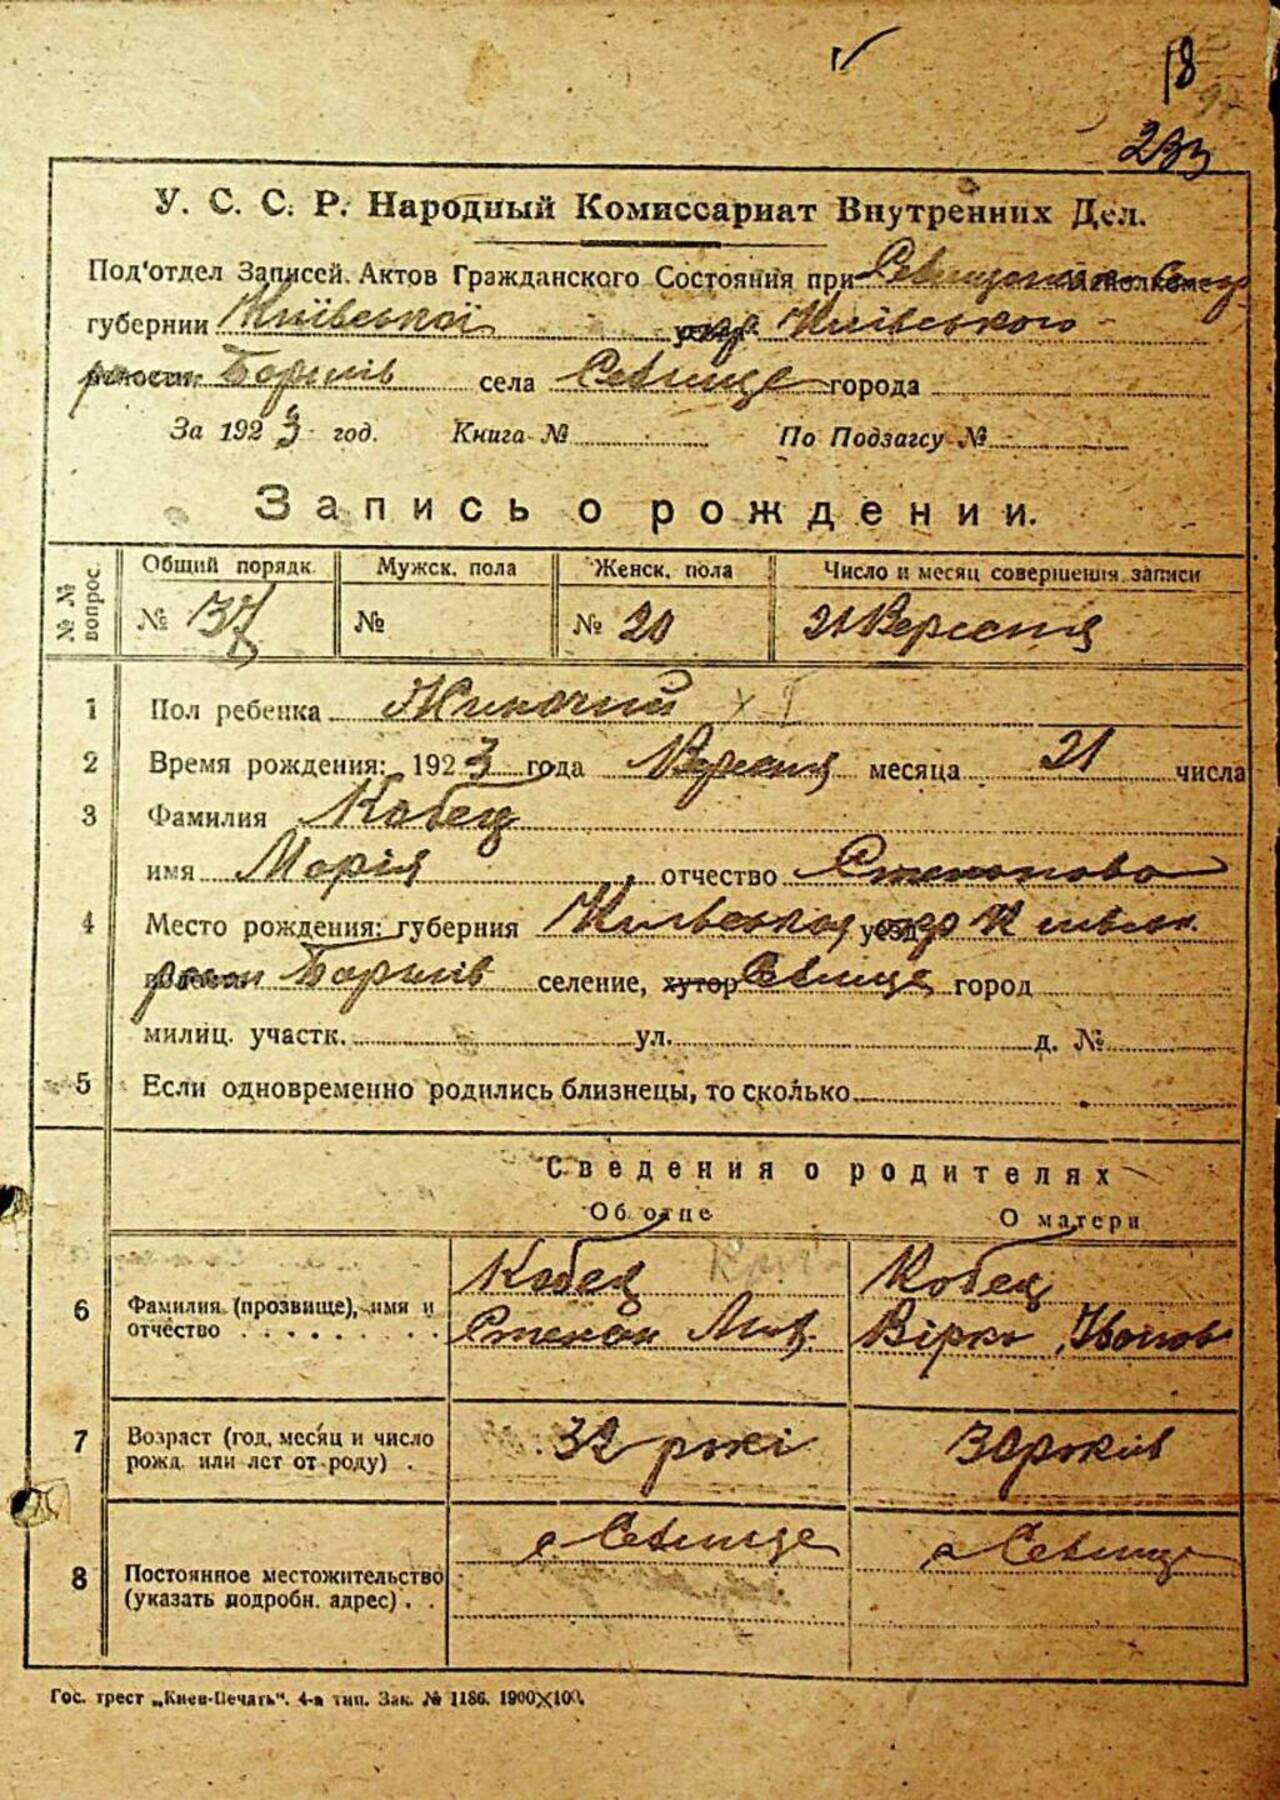 18
233
У. С. С. Р. Народный Комиссариат Внутренних Дел.
Под'отдел Записей Актов Гражданского Состояния при
губернии Київської окр Київського
район Бориспів села Севище города
За 1923 год. Книга № По Подзагсу №
Запись о рождении.
№ № вопрос. Общий порядк. Мужск. пола Женск. пола Число и месяц совершения записи
№ 37 № № 20 21 Вересня
1 Пол ребенка Жиночий
2 Время рождения: 1923 года Вересня месяца 21 числа
3 Фамилия Кобец
имя Марія отчество Степанова
4 Место рождения: губерния Київської окр Київськ.
селение, хутор Севище город
милиц. участк. ул. д. №
5 Если одновременно родились близнецы, то сколько
Сведения о родителях
Об отце О матери
Кобец Кобец
6 Фамилия (прозвище), имя и отчество Степан Вірка Іванов
7 Возраст (год, месяц и число рожд. или лет от роду) 32 рокі 30 років
8 Постоянное местожительство (указать подробн. адрес) с Севище с Севище
Гос. трест „Киев-Печать“. 4-я тип. Зак. № 1186. 1900×100.